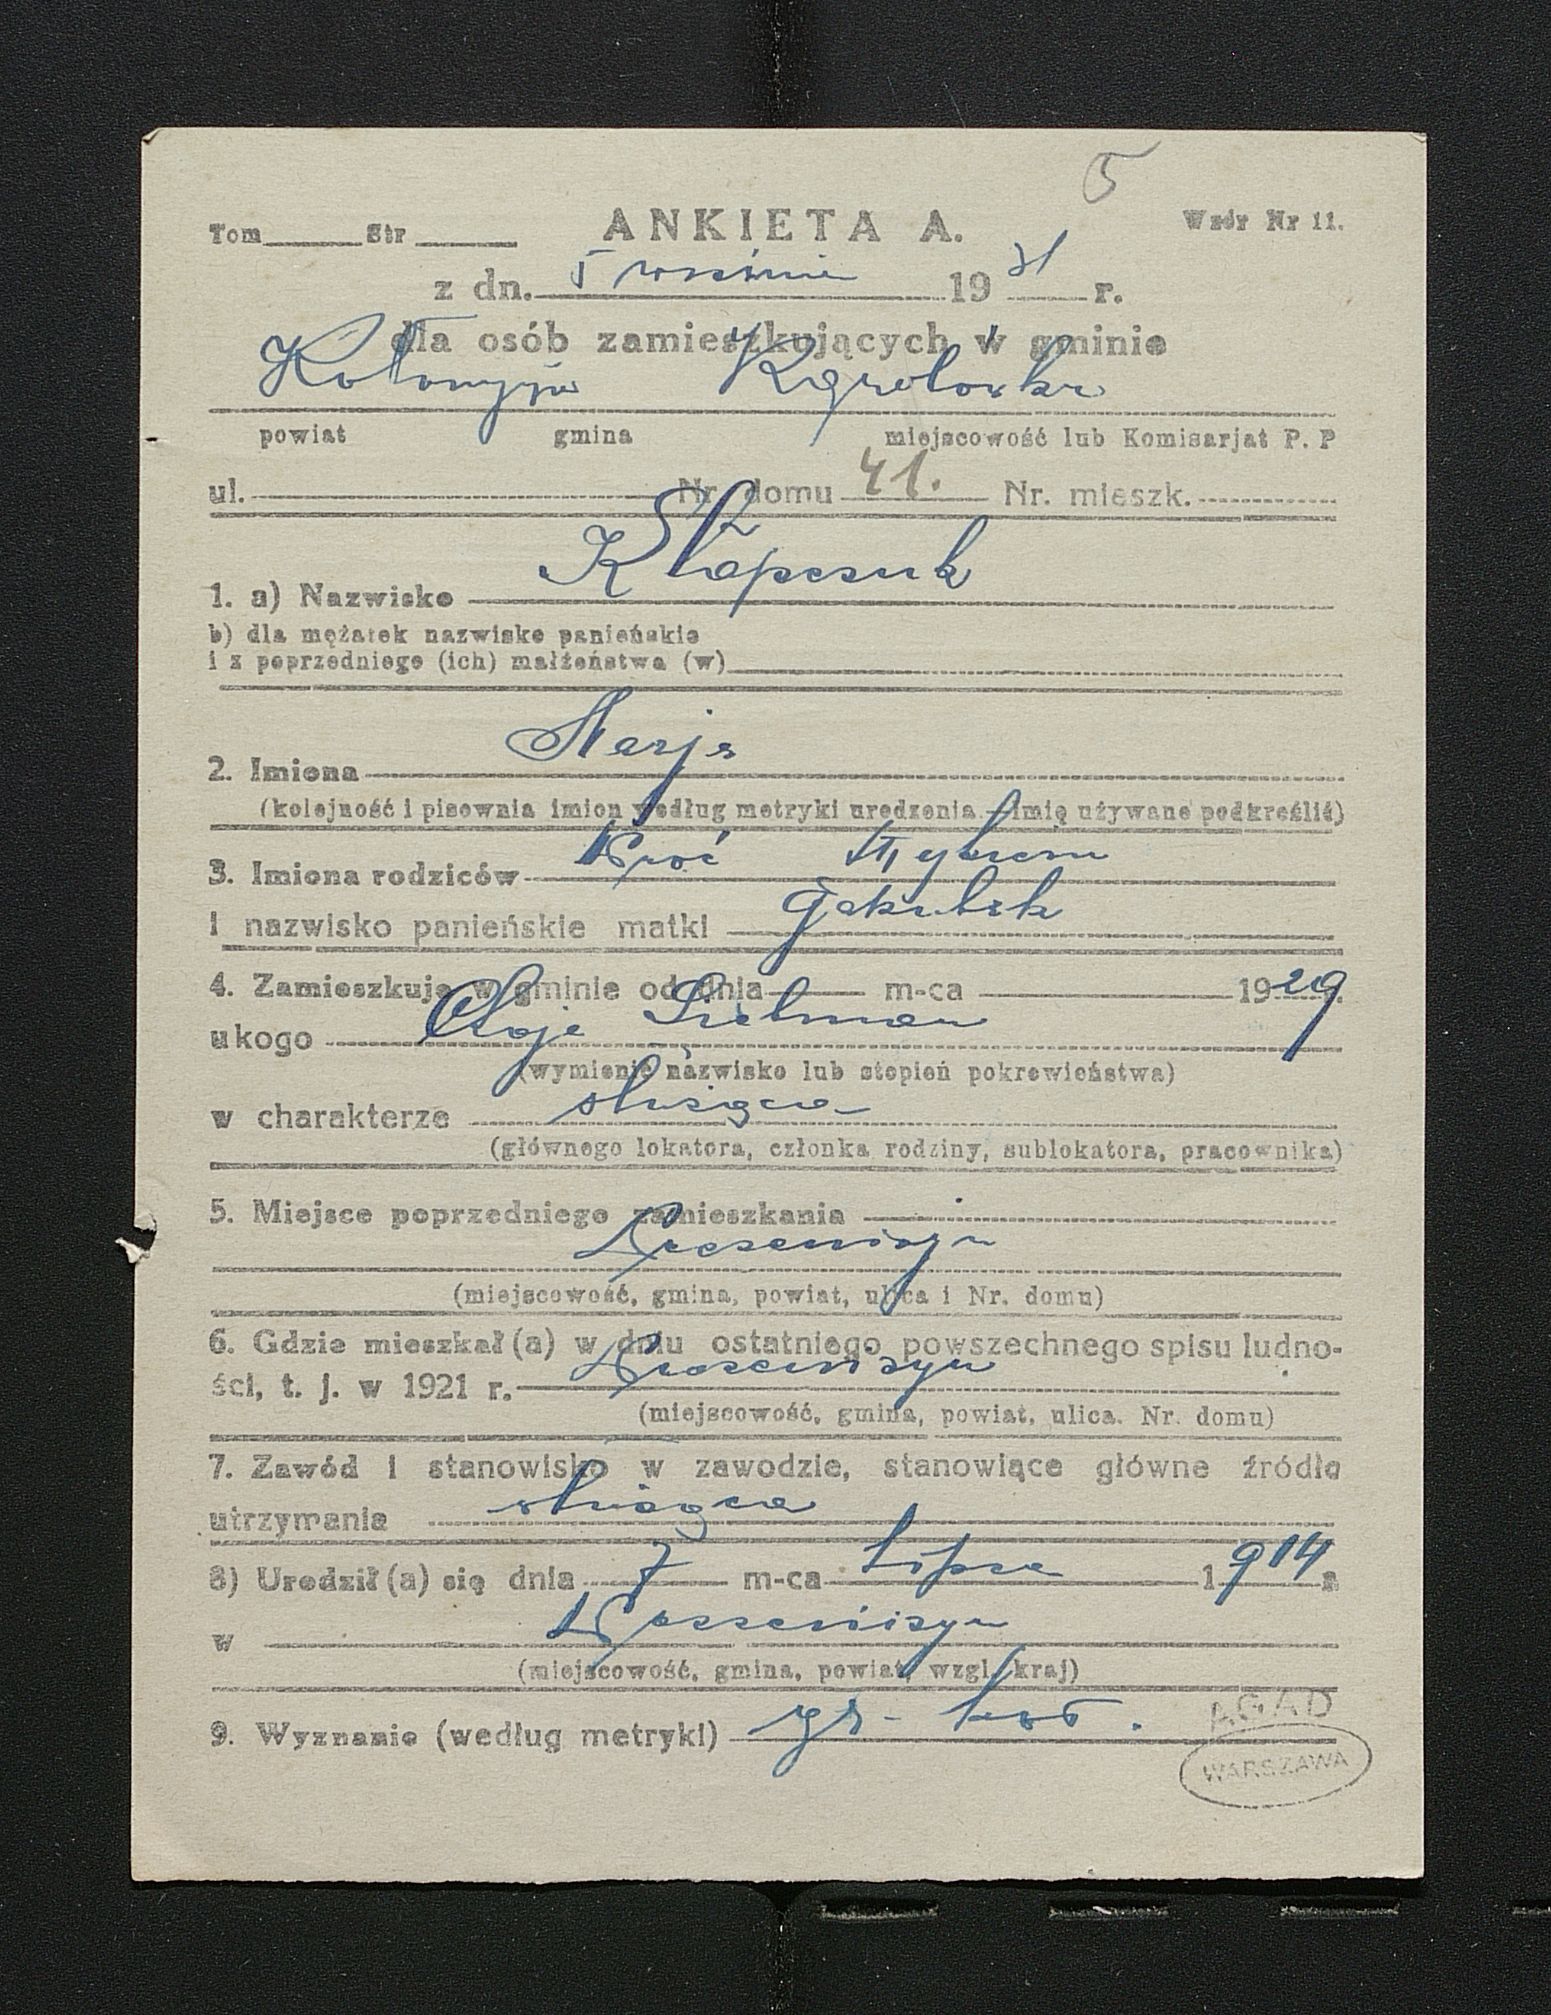 5
Tom Str ANKIETA A. Wzór Nr 11.
z dn. 5 wrzśnia 19 31 r.
dla osób zamieszkujących w gminie
Kołomyja
powiat gmina miejscowość lub Komisarjat P. P
ul. Nr. domu 41. Nr. mieszk.
1. a) Nazwisko Kłapczuk
b) dla mężatek nazwisko panieńskie
i z poprzedniego (ich) małżeństwa (w)
2. Imiona Marja
(kolejność i pisownia imion według metryki urodzenia - imię używane podkreślić)
3. Imiona rodziców
i nazwisko panieńskie matki
4. Zamieszkuje w gminie od dnia m-ca 1929 r.
u kogo Chaje
(wymienić nazwisko lub stopień pokrewieństwa)
w charakterze służąca
(głównego lokatora, członka rodziny, sublokatora, pracownika)
5. Miejsce poprzedniego zamieszkania
(miejscowość, gmina, powiat, ulica i Nr. domu)
6. Gdzie mieszkał (a) w dniu ostatniego powszechnego spisu ludno-
ści, t. j. w 1921 r.
(miejscowość, gmina, powiat, ulica. Nr. domu)
7. Zawód i stanowisko w zawodzie, stanowiące główne źródło
utrzymania służąca
8) Urodził (a) się dnia 7 m-ca lipca 1914 r
w
(miejscowość, gmina, powiat, wzgl. kraj)
9. Wyznanie (według metryki) gr - kat.
AGAD
WARSZAWA